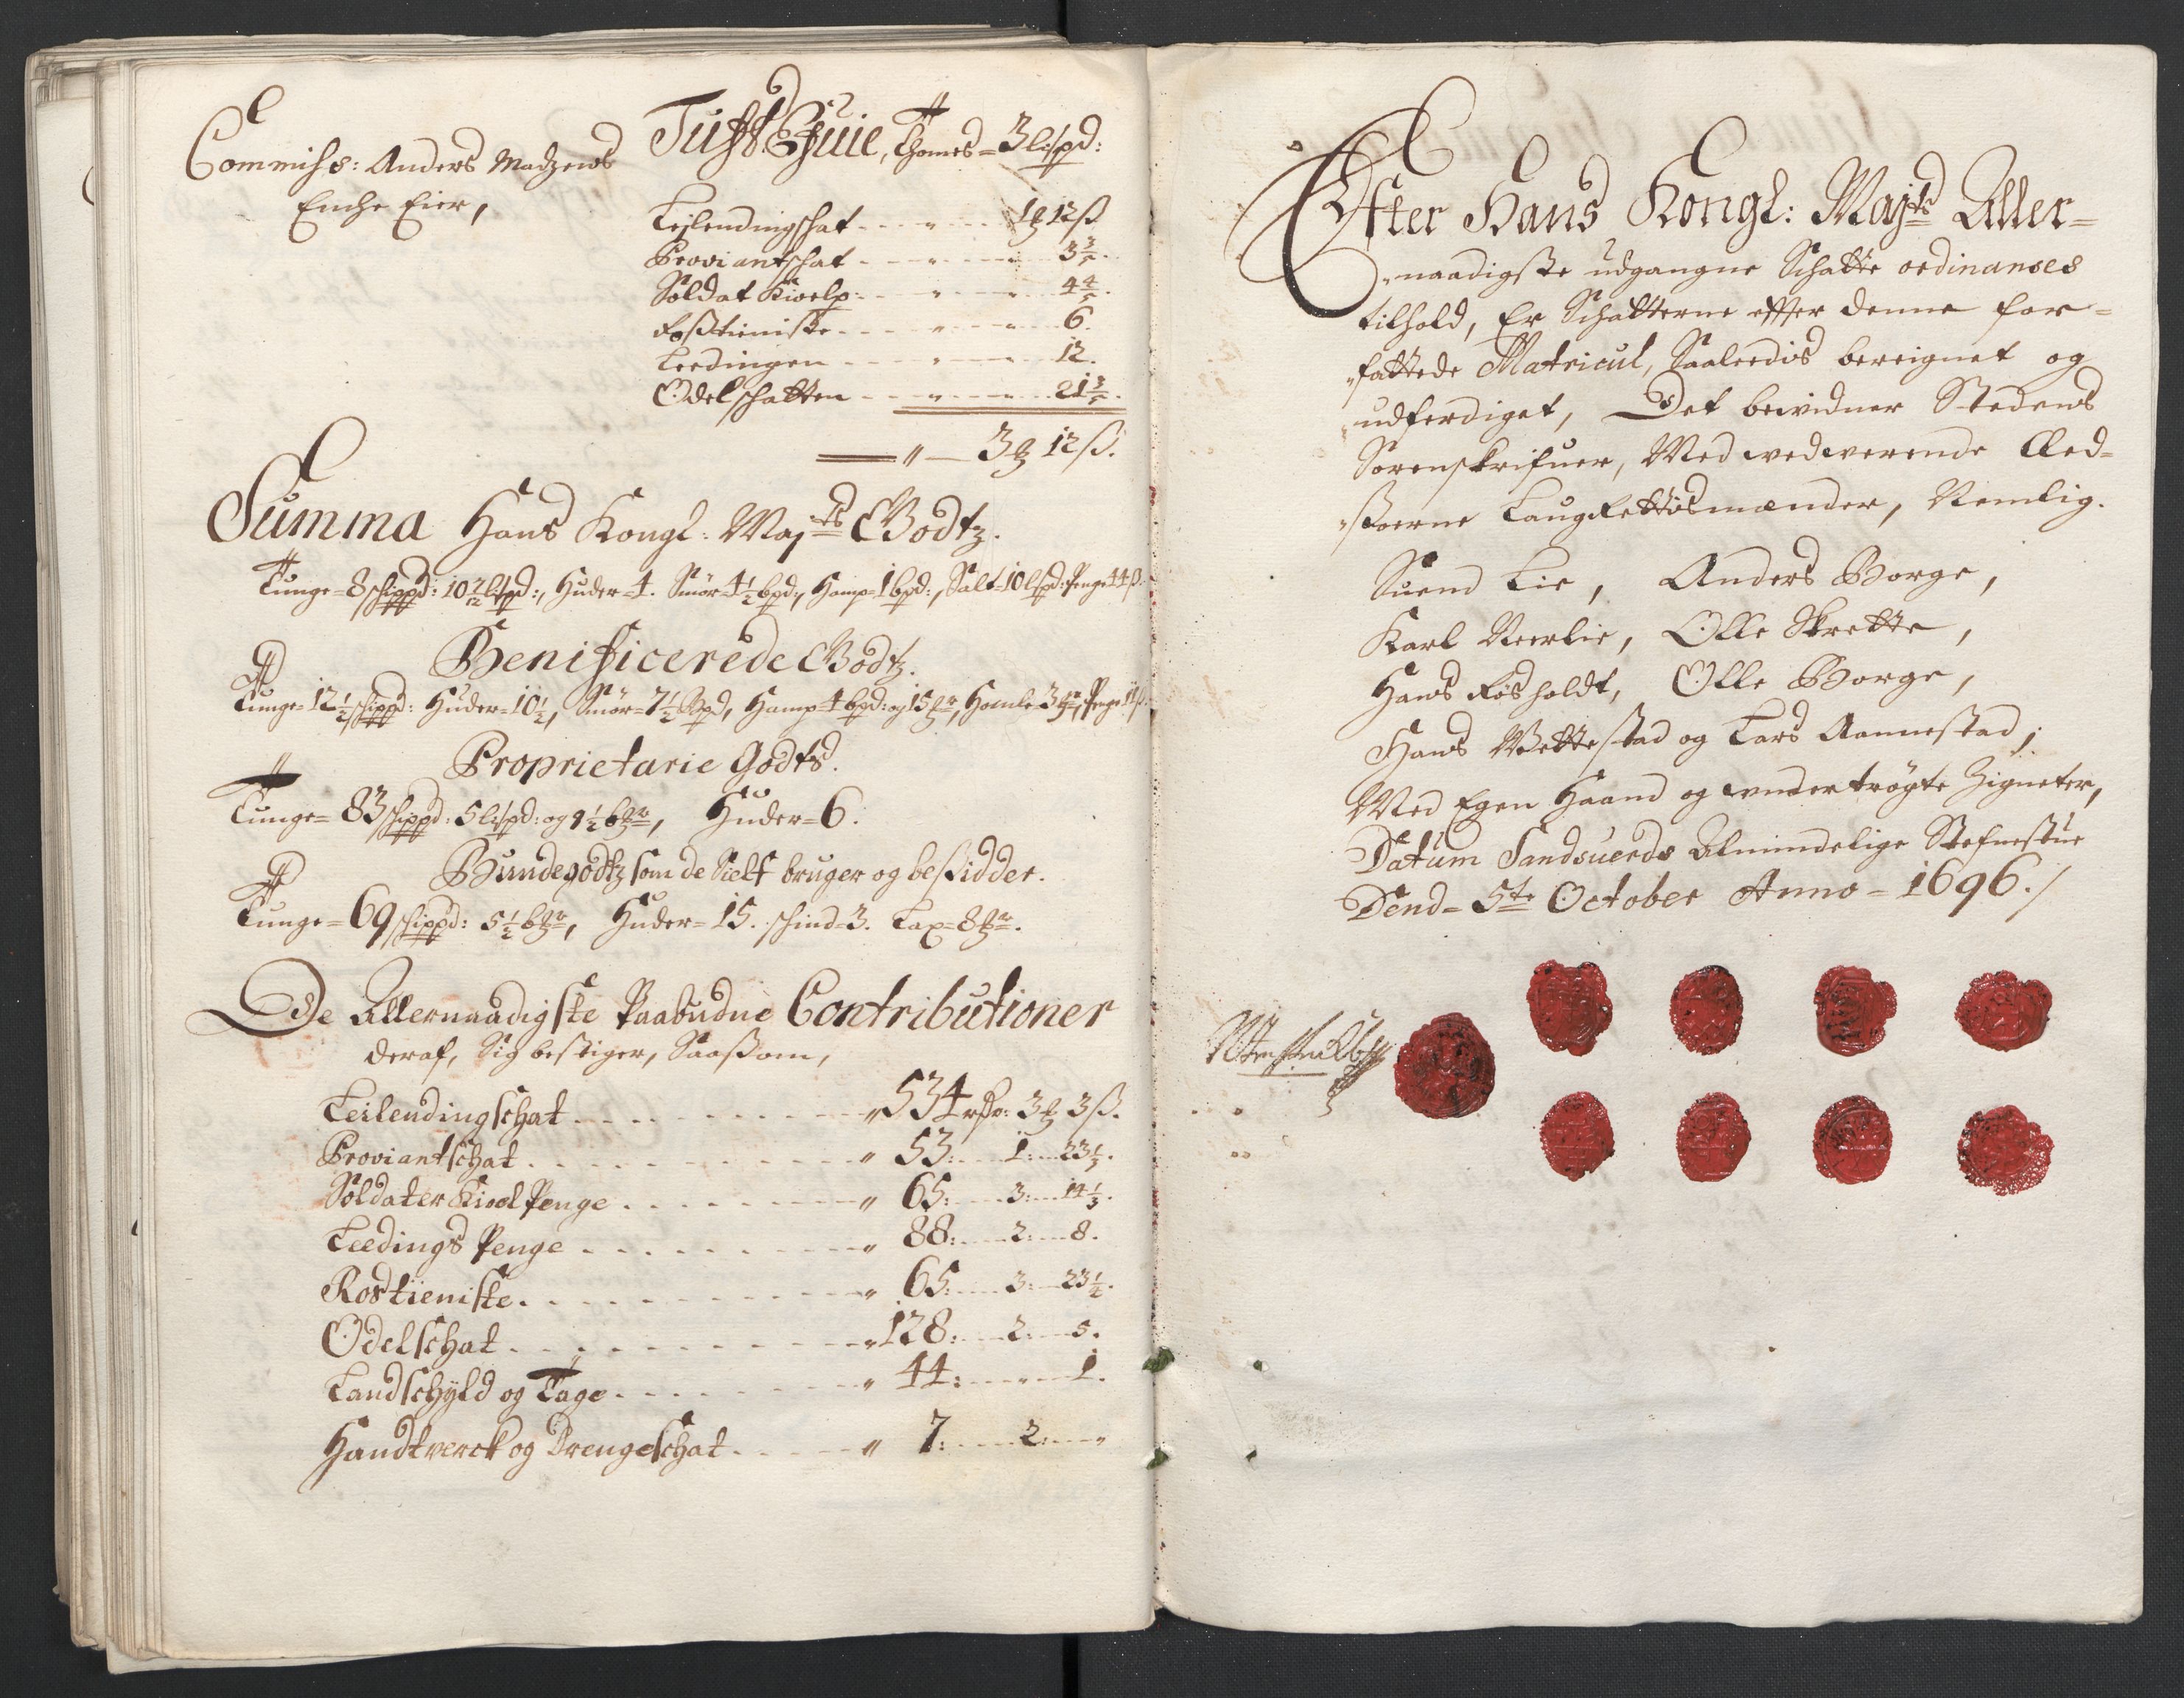 Commihs: Anders Madzens
Enche Eier,
Tuft Ehuie, Thomes = 3 lispd:
Leilendingschat - - - " - - - 1 ꝸ 12 ß
Proviantschat - - - " - - - 3 3/5.
Soldat Kioelp: - - " - - - 4 4/5.
Rosztieniste - - - " - - - 6.
Leedingen - - - " - - - 12.
Odelschatten - - - " - - - 21 3/5.
" — 3 ꝸ 12 ß.
Summa Hans Kongl: Majts Godtz.
Tunge = 8 schippd: 10 7/12 lispd:, Huder = 4. Smör = 4 1/2 bpd:, Hamp = 1 bpd:, Salt = 10 lispd: Penge 44 ß.
Benificerede Godtz.
Tunge = 12 1/2 schippd: Huder = 10 1/2, Smör = 7 1/2 Bpd, Hamp = 4 bpd: og 15 mr, Homle 3 mr, Penge
Proprietarie Godts.
Tunge = 83 schippd: 5 lispd: og 9 1/2 bmr, Huder = 6.
Bundegodtz som de Sielf bruger og besidder.
Tunge = 69 schippd: 5 1/2 bmr, Huder = 15. schind = 3. Lax = 8 mr.
De Allernaadigste Paabudne Contributioner
deraf, Sig bestiger, Saasom,
Leilendingschat - - - " 534 rdr: 3 ꝸ 3 ß.
Proviantschat - - - " 53: 1: 23 1/3.
Soldater Kioel Penge - - - " 65: 3: 14 1/3.
Leedings Penge - - - " 88: 2: 8.
Rostieniste - - - " 65: 3: 23 1/2.
Odelschat - - - " 128: 2: 5.
Landschyld og Tage - - - " 44: " 1.
Handtverck og Drengeschat - - - " 7: 2: "
Efter Hans Kongl: Majts Aller=
naadigste udgangne Schatte ordinanses
tilhold, Er Schatterne efter denne for=
fattede Matricul, Saaleedis bereignet og
udferdiget, Det bevidner Stedens
Sorenskrifuer, Med vedverende Æed=
soerne Laugrettismænder, Nemlig.
Suend Lie, Anders Borge,
Karl Neerlie, Olle Skrette,
Hans Fosholdt, Olle Borge,
Hans Vettestad og Lars Aannestad;
Med Egen Haand og undertrögte Zigneter,
Datum Sandsuerds Almindelige Stefnestue
Dend = 5te October Anno = 1696./